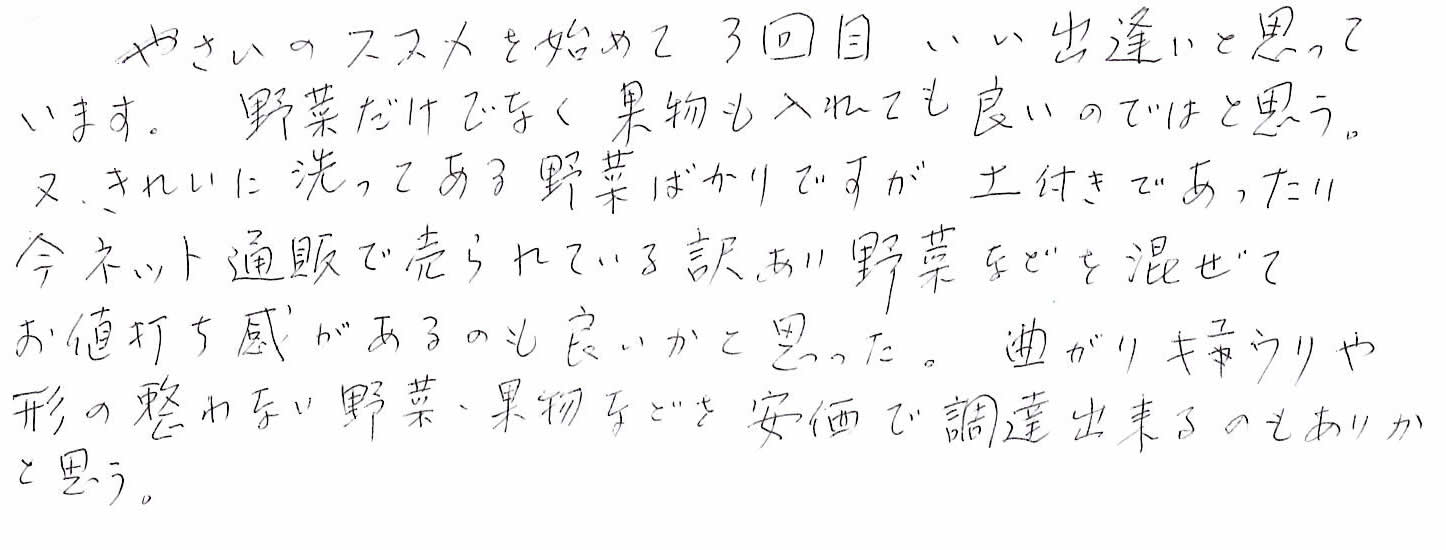 やさいのススメを始めて3回目 いい出逢いと思って
います。 野菜だけでなく果物も入れても良いのではと思う。
又、きれいに洗ってある野菜ばかりですが 土付きであったり
今ネット通販で売られている訳あり野菜などを混ぜて
お値打ち感があるのも良いかと思った。 曲がりキュウリや
形の整わない野菜、果物などを安価で調達出来るのもありか
と思う。